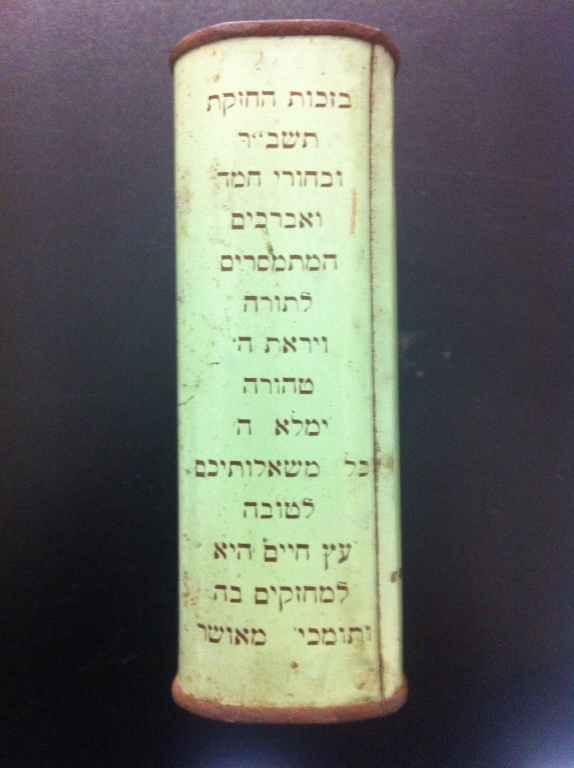 בזכות החזקת
תשב״ר
ובחורי חמד
ואברכים
המתמסרים
לתורה
ויראת ה'
טהורה
ימלא ה'
כל משאלותיכם
לטובה
עץ חיים היא
למחזקים בה
ותומכי' מאושר